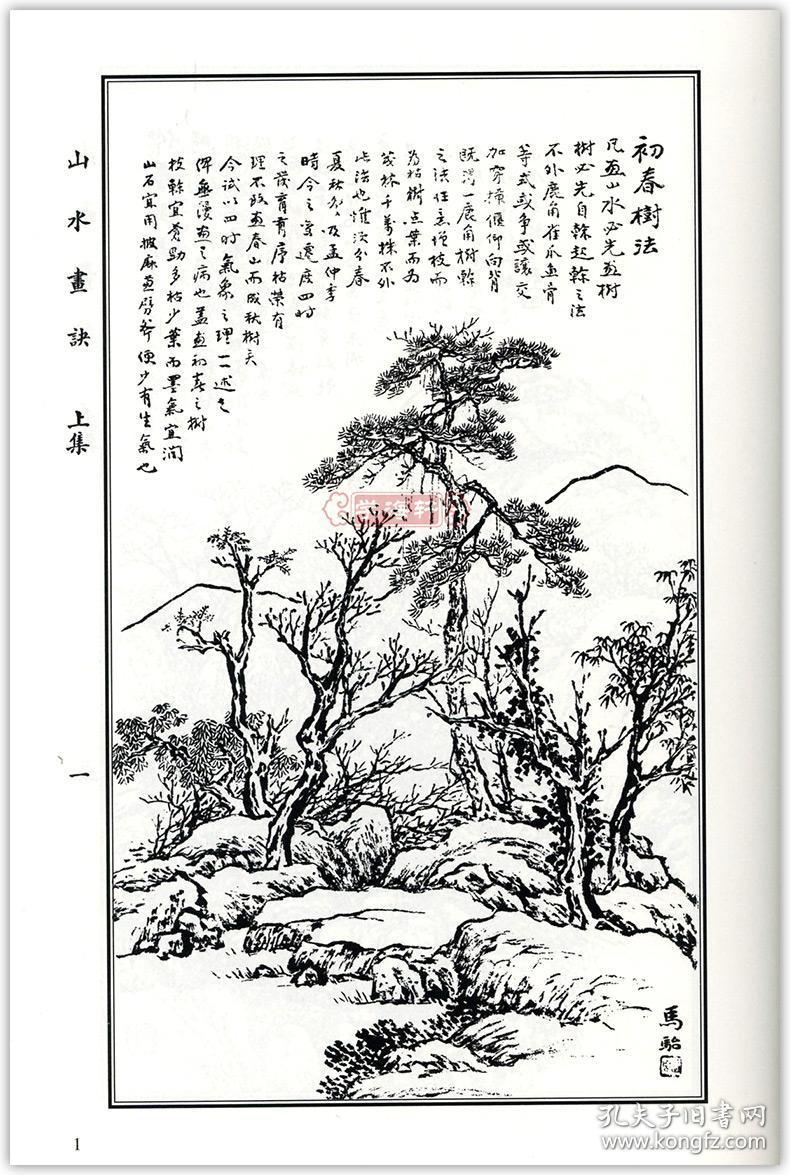 初春樹法
凡画山水必先画樹
樹必先自榦起榦之法
不外鹿角雀爪魚骨
等式或争或讓交
加穿插偃仰向背
既得一鹿角樹榦
之法任意增枝而
為枯樹点葉而為
茂林千萬株不外
此法也惟次分春
夏秋冬及孟仲季
時令之變遷度四时
之發育有序枯榮有
理不致画春山而成秋樹矣
今试以四时氣象之理一一述之
俾無漫画之病也盖画初春之樹
枝榦宜蒼勁多枯少葉而墨氣宜润
山石宜用披麻兼劈斧便少有生氣也
馬駘
山水畫訣 上集
一
1
學海軒
孔夫子旧書网
www.kongfz.com